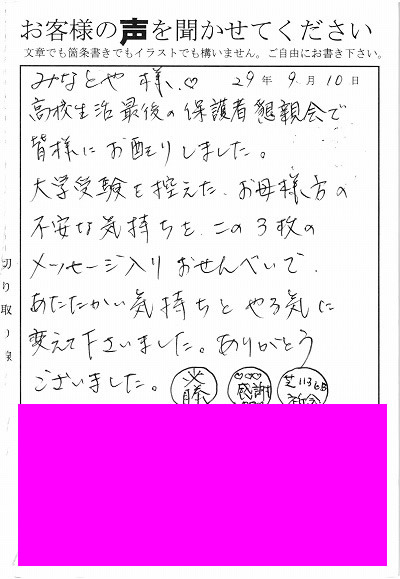 お客様の声を聞かせてください
文章でも箇条書きでもイラストでも構いません。ご自由にお書き下さい。
みなとや 様、♡ 29年9月10日
高校生活最後の保護者懇親会で
皆様にお配りしました。
大学受験を控えた、お母様方の
不安な気持ちを、この3枚の
メッセージ入りおせんべいで、
あたたかい気持ちとやる気に
変えて下さいました。ありがとう
ございました。
感謝
切り取り線